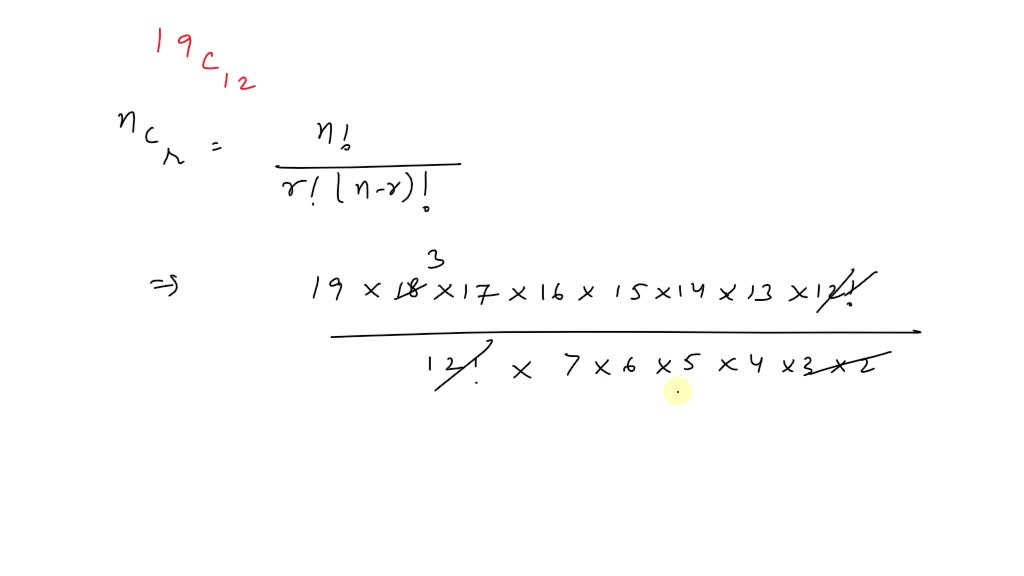 19C12
nCr = n!
r! (n-r)!
3
⇒ 19 × 18 × 17 × 16 × 15 × 14 × 13 × 12!
12! × 7 × 6 × 5 × 4 × 3 × 2